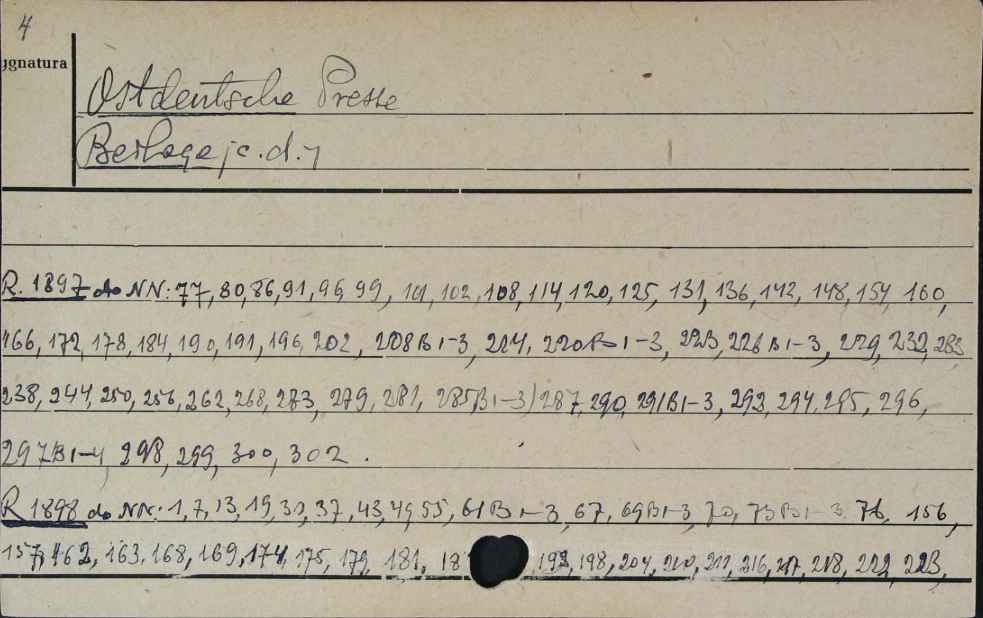 4
ygnatura
Ostdeutsche Presse
Beilage /c.d./
R. 1897 do NN: 77, 80, 86, 91, 96, 99, 101, 102, 108, 114, 120, 125, 131, 136, 142, 148, 154, 160,
166, 172, 178, 184, 190, 191, 196, 202, 208 B 1-3, 214, 220 B 1-3, 223, 226 B 1-3, 229, 232, 233
238, 244, 250, 256, 262, 268, 273, 279, 281, 285 B 1-3) 287, 290, 291 B 1-3, 293, 294, 295, 296,
297 B 1-4, 298, 299, 300, 302.
R 1898 do NN: 1, 7, 13, 19, 31, 37, 43, 49, 55, 61 B 1-3, 67, 69 B 1-3, 70, 73 B 1-3, 76, 156,
157, 162, 163, 168, 169, 174, 175, 179, 181, 18 192, 198, 204, 210, 211, 216, 217, 218, 222, 223,